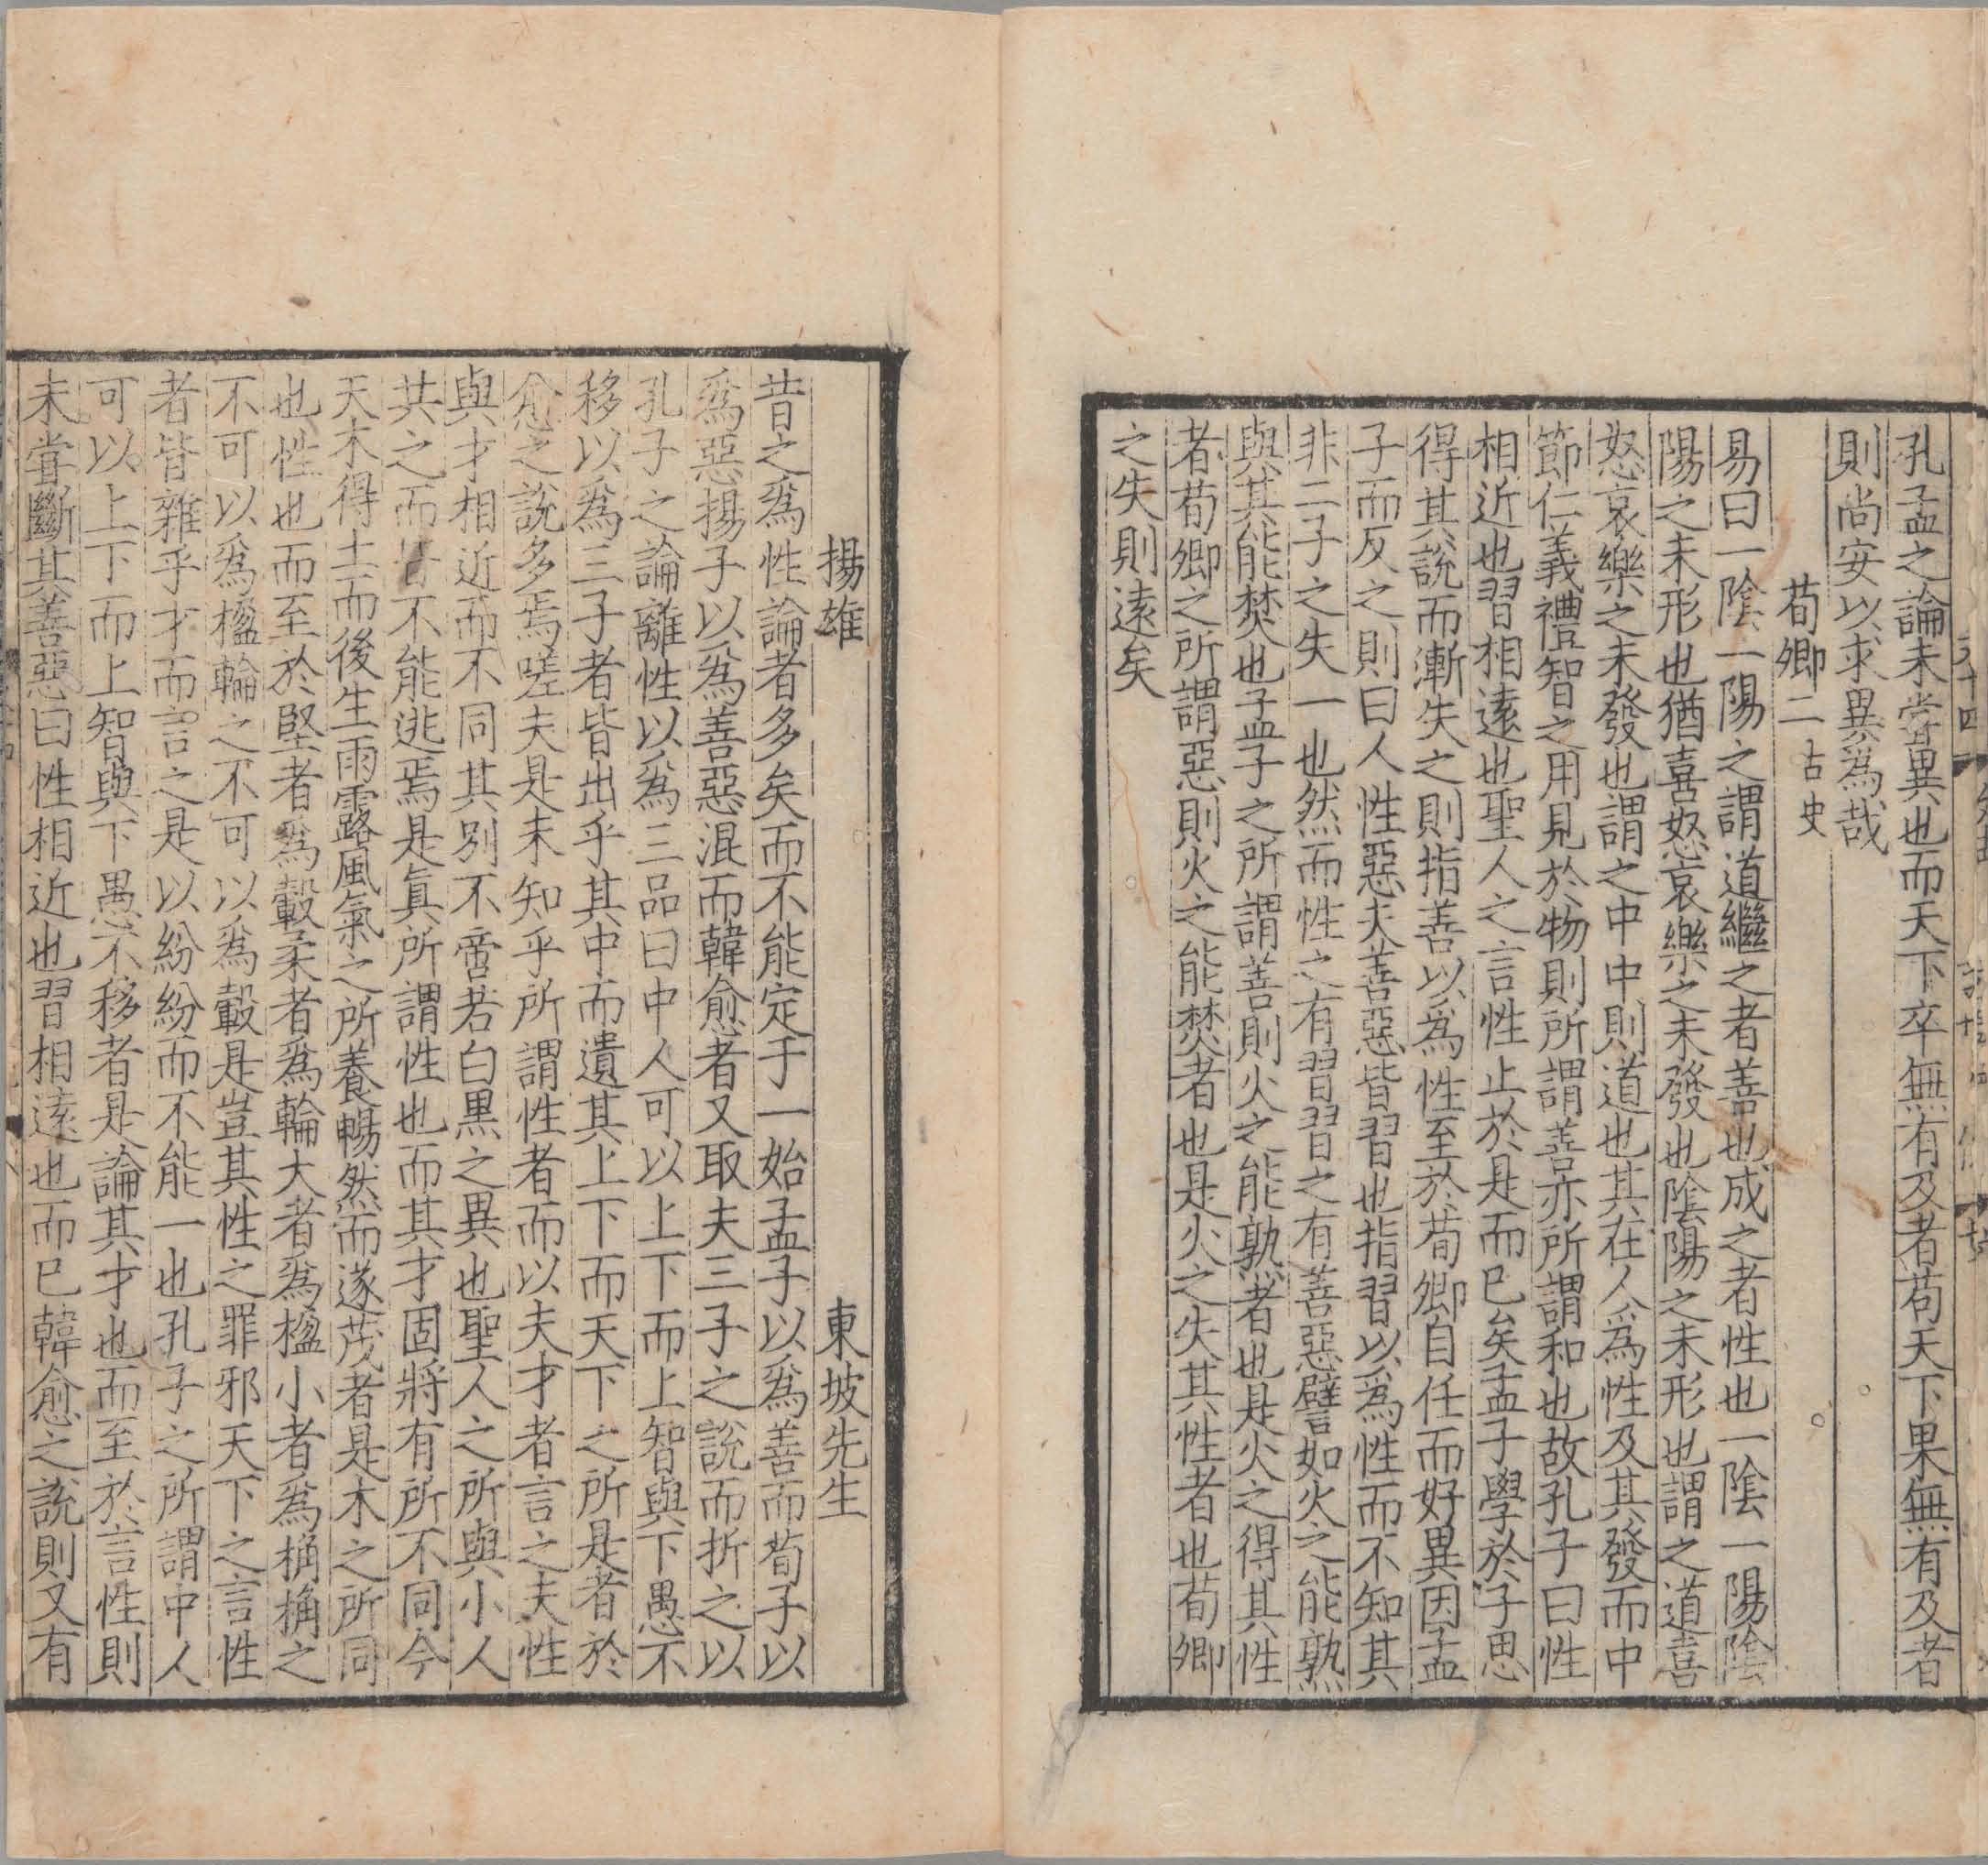 孔孟之論未嘗異也而天下卒無有及者苟天下果無有及者
則尚安以求異爲哉
荀卿二 古史
易曰一陰一陽之謂道繼之者善也成之者性也一陰一陽陰
陽之未形也猶喜怒哀樂之未發也陰陽之未形也謂之道喜
怒哀樂之未發也謂之中中則道也其在人爲性及其發而中
節仁義禮智之用見於物則所謂善亦所謂和也故孔子曰性
相近也習相遠也聖人之言性止於是而已矣孟子學於子思
得其說而漸失之則指善以爲性至於荀卿自任而好異因孟
子而反之則曰人性惡夫善惡皆習也指習以爲性而不知其
非二子之失一也然而性之有習習之有善惡譬如火之能熟
與其能焚也孟子之所謂善則火之能熟者也是火之得其性
者荀卿之所謂惡則火之能焚者也是火之失其性者也荀卿
之失則遠矣
揚雄 東坡先生
昔之爲性論者多矣而不能定于一始孟子以爲善而荀子以
爲惡揚子以爲善惡混而韓愈者又取夫三子之說而折之以
孔子之論離性以爲三品曰中人可以上下而上智與下愚不
移以爲三子者皆出乎其中而遺其上下而天下之所是者於
愈之說多焉嗟夫是未知乎所謂性者而以夫才者言之夫性
與才相近而不同其別不啻若白黑之異也聖人之所與小人
共之而皆不能逃焉是真所謂性也而其才固將有所不同今
夫木得土而後生雨露風氣之所養暢然而遂茂者是木之所同
也性也而至於堅者爲轂柔者爲輪大者爲楹小者爲桷桷之
不可以爲楹輪之不可以爲轂是豈其性之罪邪天下之言性
者皆雜乎才而言之是以紛紛而不能一也孔子之所謂中人
可以上下而上智與下愚不移者是論其才也而至於言性則
未嘗斷其善惡曰性相近也習相遠也而已韓愈之說則又有